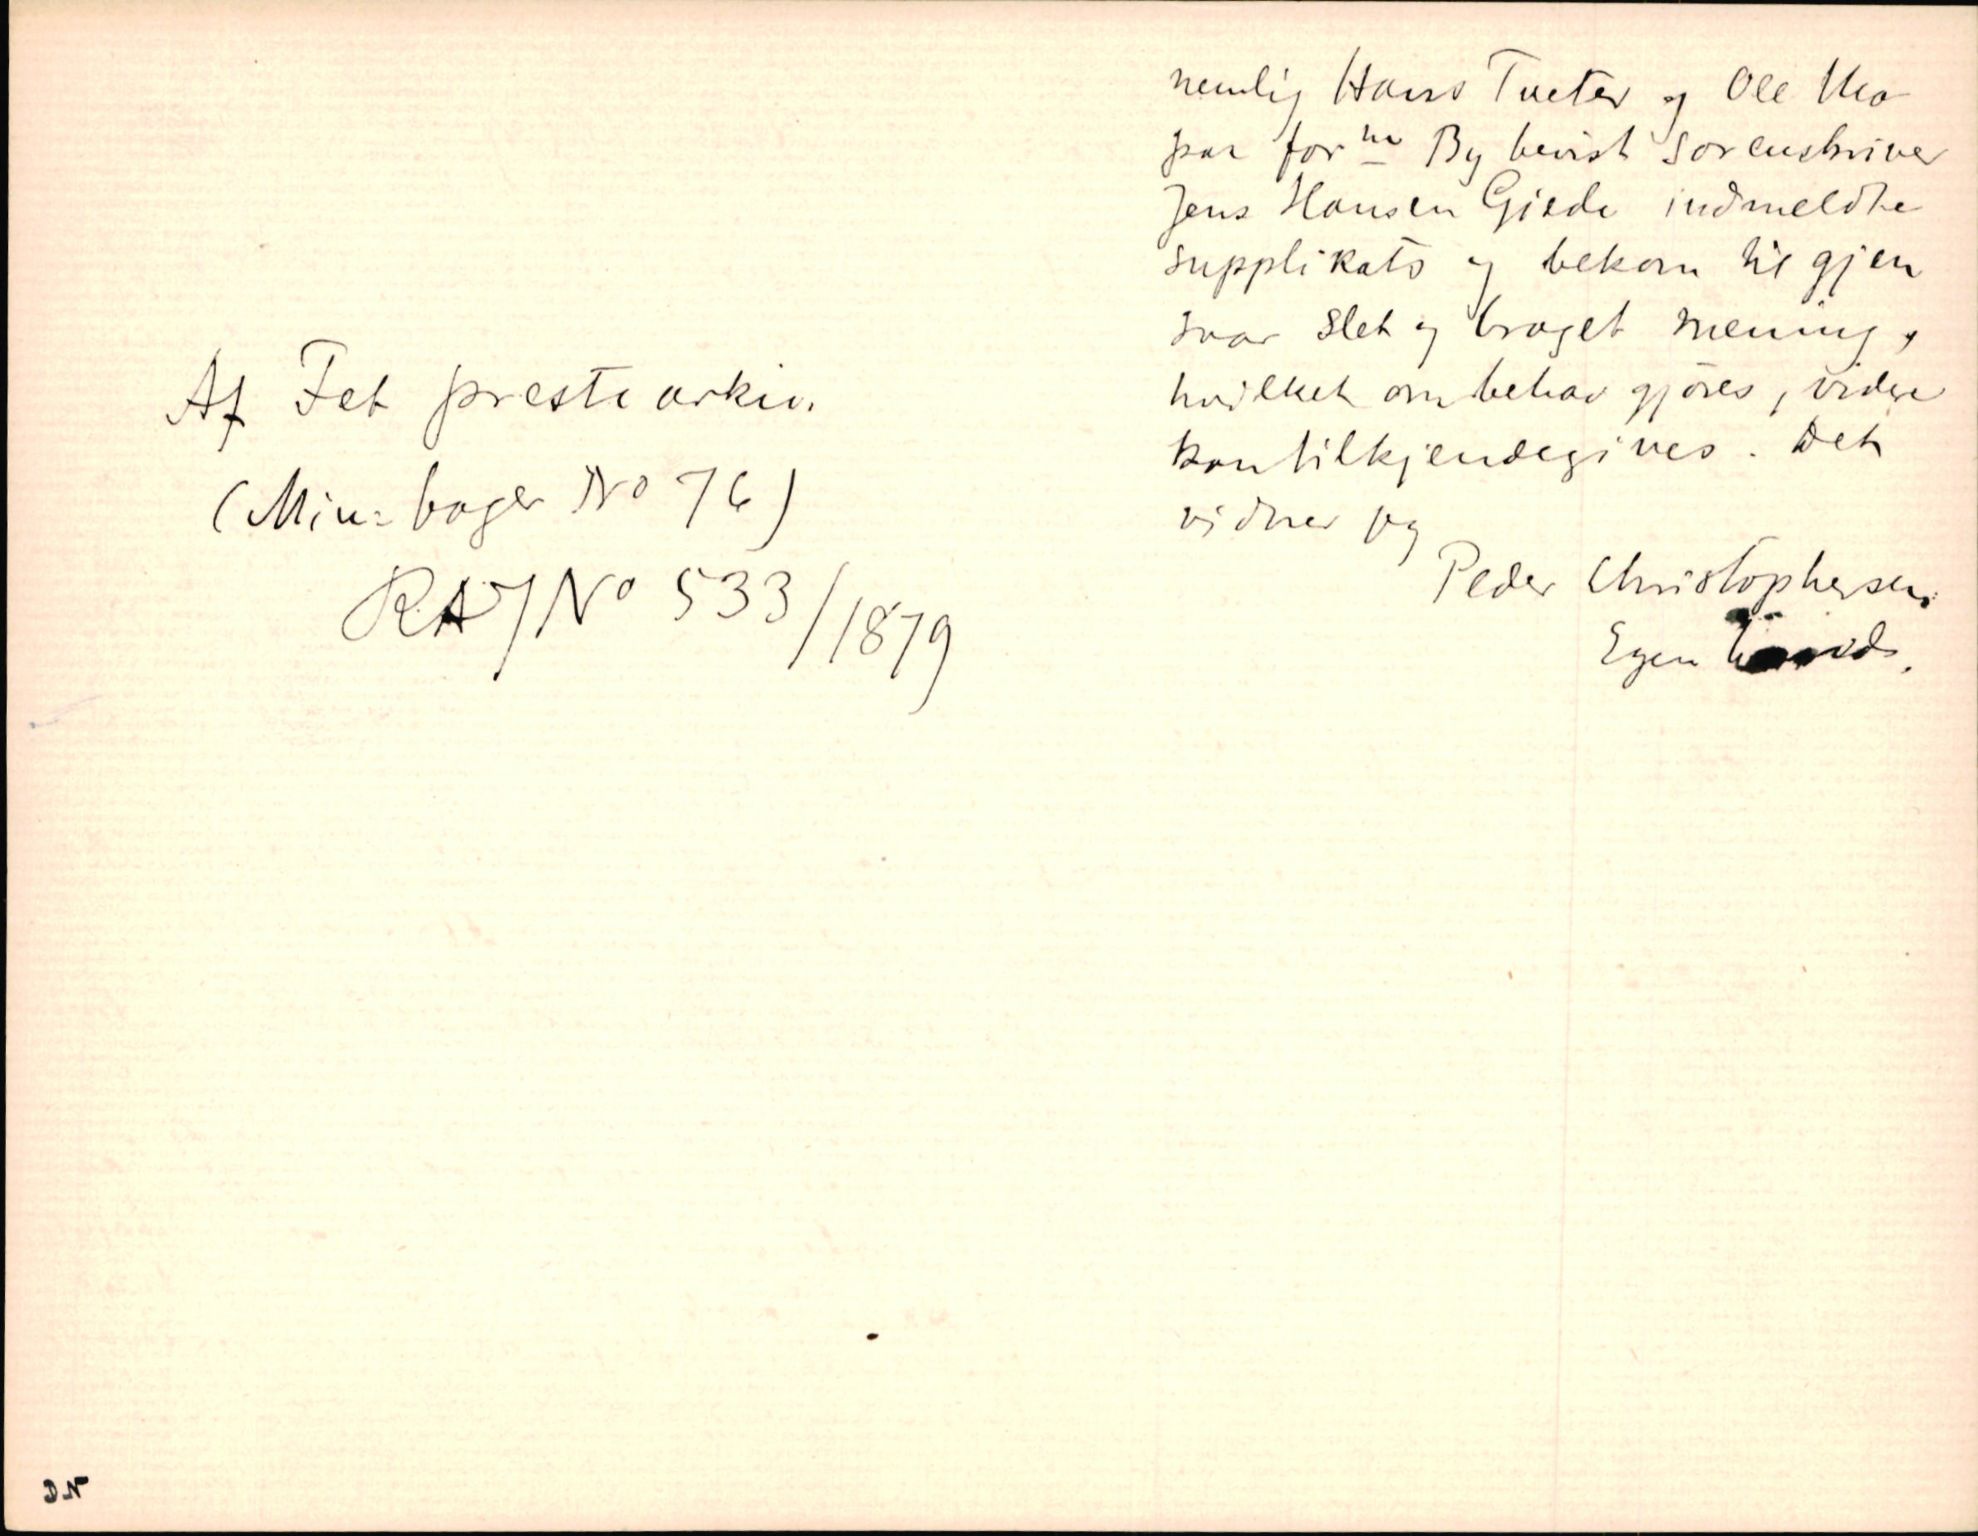 Af Fet prestearkiv.
(Min= bøger No 76)
RAJNo 533/1879
nemlig Hans Tveter og Ole
paa for ne By bevist Sorenskriver
Jens Hansen Giede indmeldte
supplikats og bekom til gjen
svar slet og braget mening,
hvilket om behov gjöres, videre
kan tilkjendegives. Det
vidner jeg
Peder Christophersen
Egen
DN